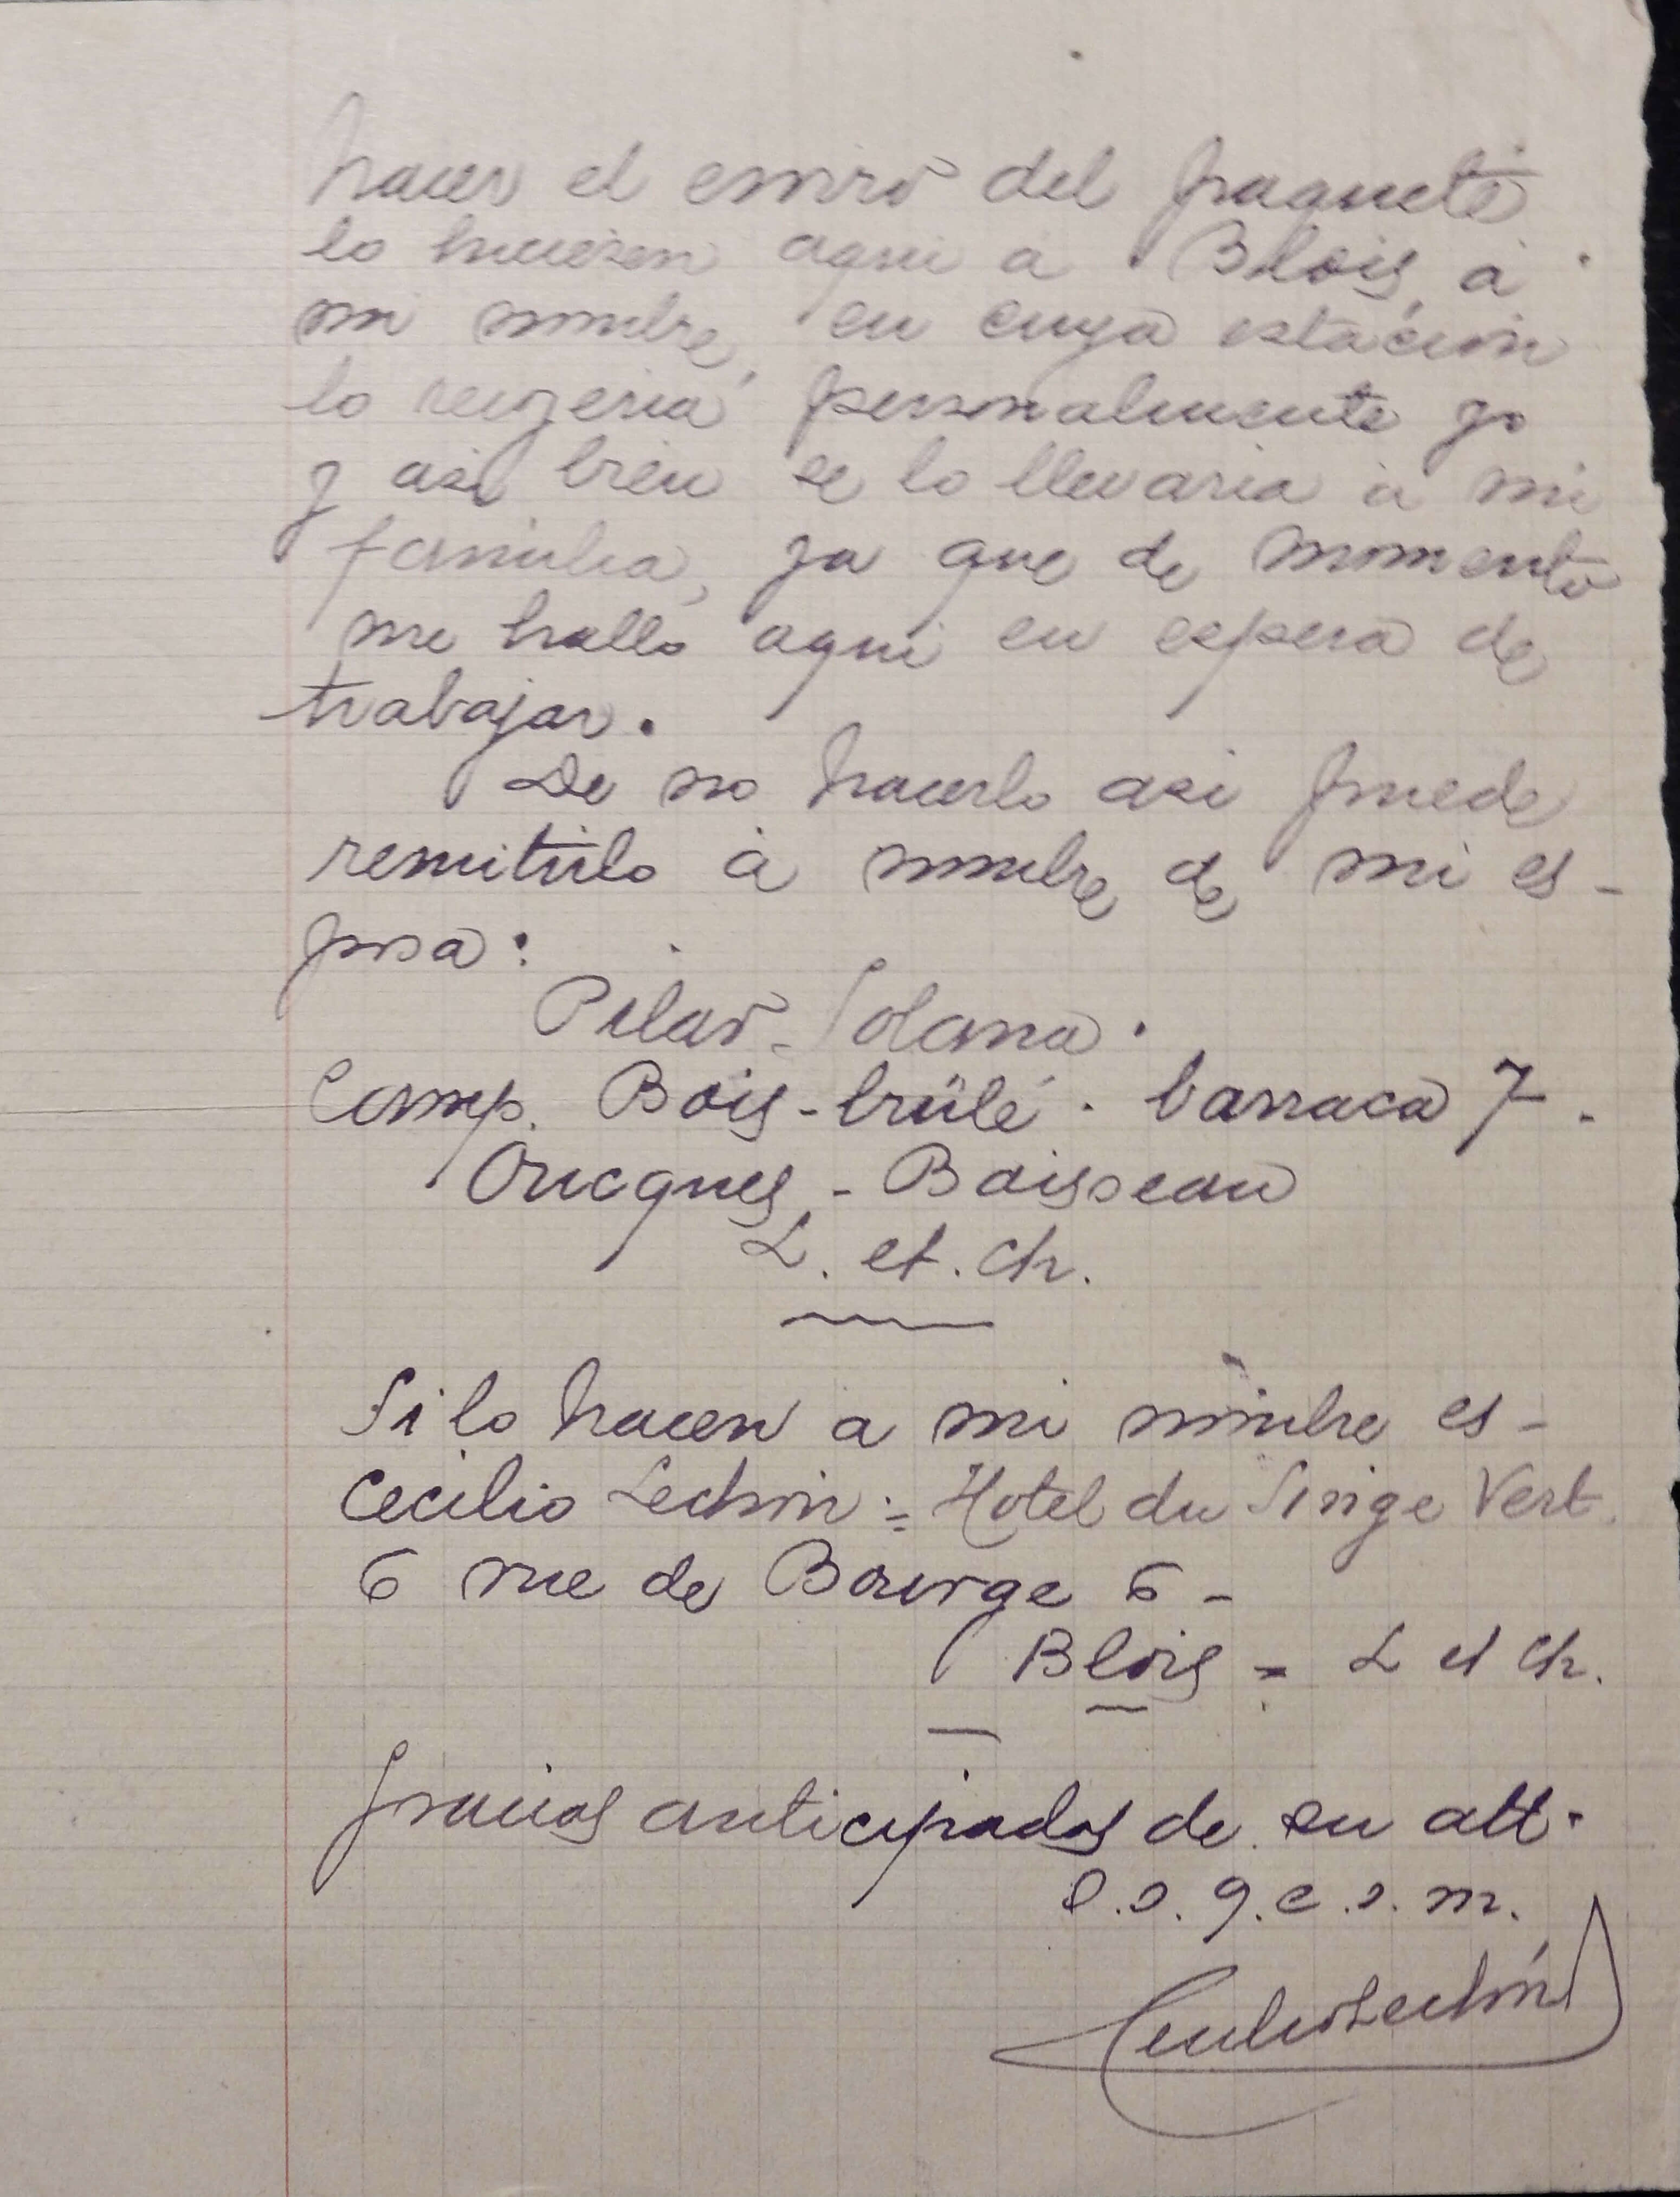 hacer el envio del paquete
lo hiciesen aqui a Blois, á
mi nombre, en cuya estación
lo recojeria personalmente yo
y asi bien se lo llevaria á mi
familia, ya que de momento
me hallo aqui en espera de
trabajar.
De no hacerlo asi puede
remitirlo á nombre de mi es-
posa:
Pilar Solana.
Camp. Bois-brûlé. barraca 7.
Oucques - Boisseau
L. et. Ch.
Si lo hacen a mi nombre es-
Cecilio Lechón = Hotel du Singe Vert.
6 rue de Bourge 6 -
Blois = L et Ch.
Gracias anticipadas de su att.
s. s. q. e. s. m.
Cecilio Lechón